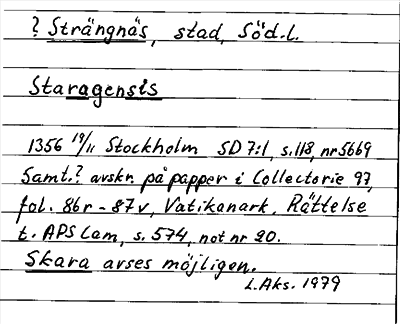 ? Strängnäs, stad, Söd.l.
Staragensis
1356 19/11 Stockholm SD 7:1, s.118, nr 5669
Samt.? avskr. på papper i Collectorie 97,
fol. 86r - 87v, Vatikanark. Rättelse
t. APS Cam, s. 574, not nr 20.
Skara avses möjligen.
L. Aks. 1979